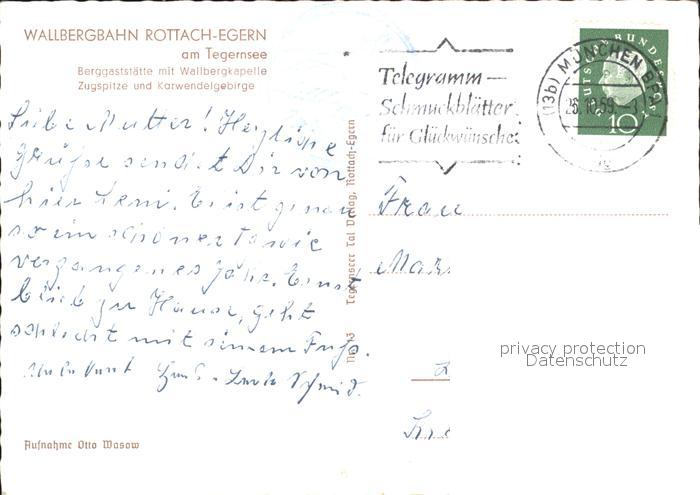 WALLBERGBAHN ROTTACH-EGERN
am Tegernsee
Berggaststätte mit Wallbergkapelle
Zugspitze und Karwendelgebirge
Liebe Mutter! Herzliche
Grüße sendet Dir von
hier Heini. Es ist genau
so ein schöner Tag wie
vergangenes Jahr. Ernst
blieb zu Hause, geht
schlecht mit seinem Fuß.
Schmid.
Aufnahme Otto Wasow
Tegernseer Tal Verlag, Rottach-Egern
Telegramm —
Schmuckblätter
für Glückwünsche
(13b) MÜNCHEN BPA
26.10.59
DEUTSCHE BUNDESPOST
10
Frau
Mar
privacy protection
Datenschutz